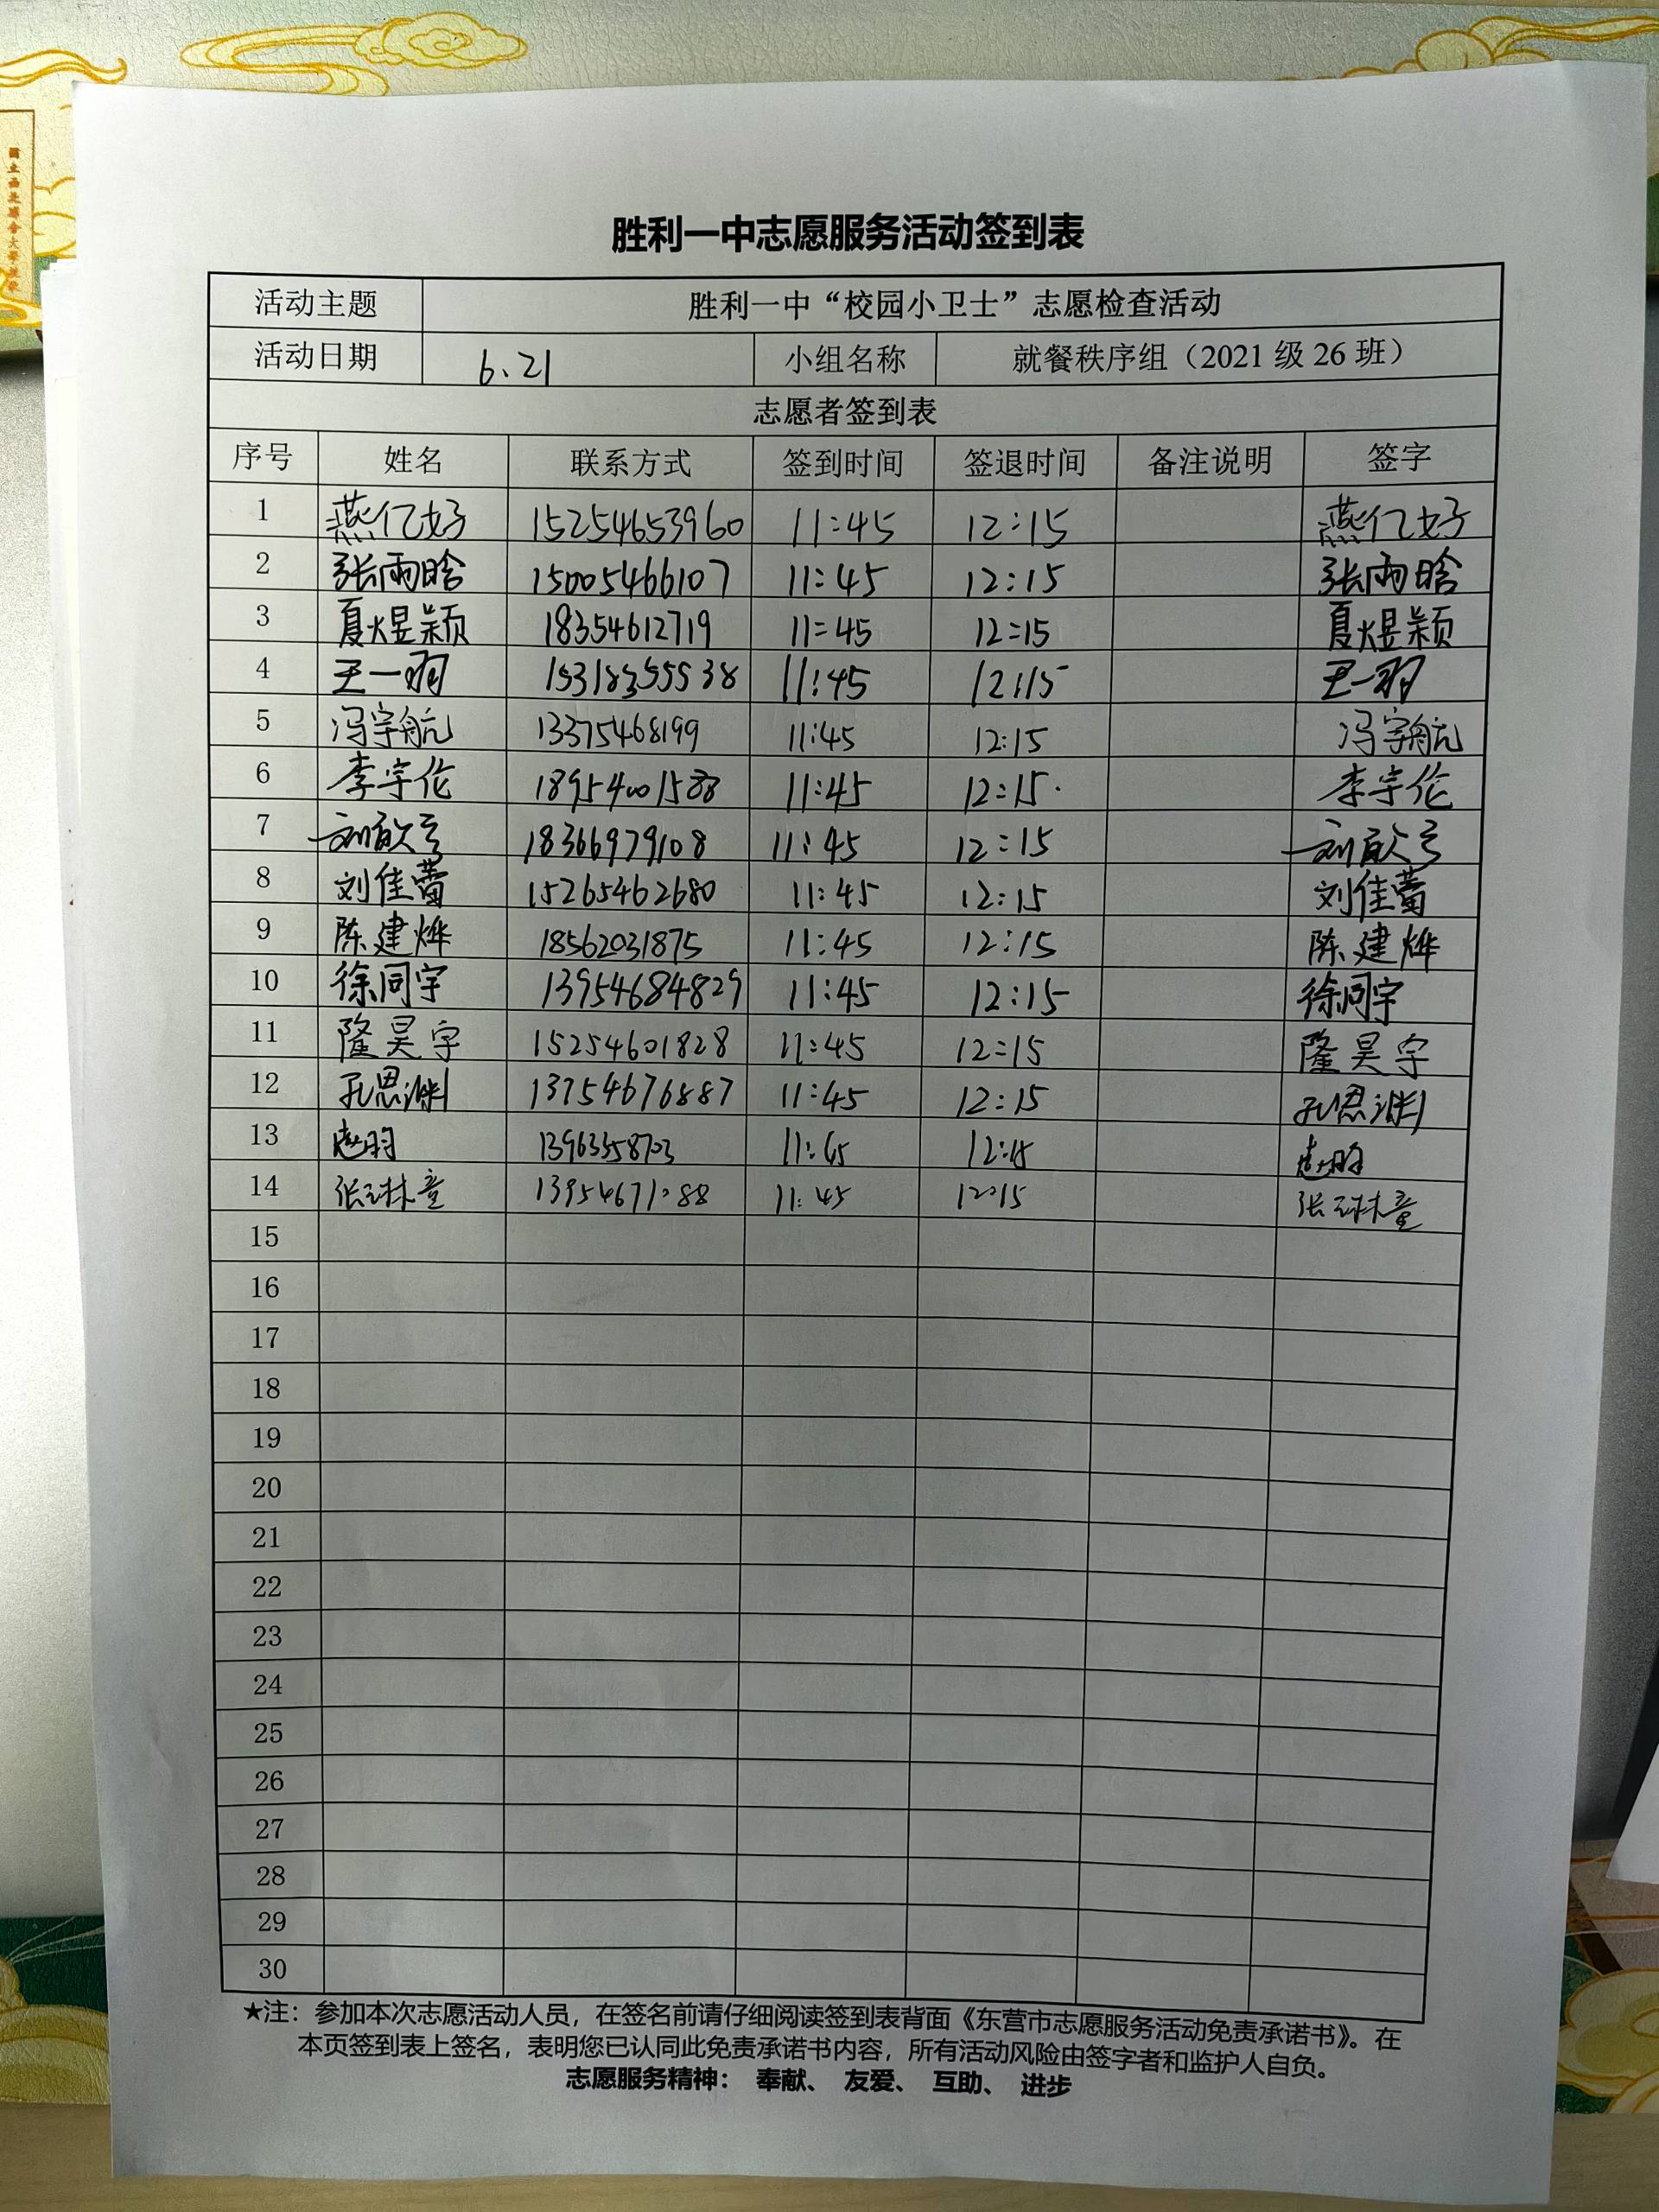 胜利一中志愿服务活动签到表
活动主题 胜利一中“校园小卫士”志愿检查活动
活动日期 6、21 小组名称 就餐秩序组（2021级26班）
志愿者签到表
序号 姓名 联系方式 签到时间 签退时间 备注说明 签字
1 燕亿好 15254653960 11:45 12:15 燕亿好
2 张雨晗 15005466107 11:45 12:15 张雨晗
3 夏煜颖 18354612719 11:45 12:15 夏煜颖
4 王一羽 15318355538 11:45 12:15 王一羽
5 冯宇航 13375468199 11:45 12:15 冯宇航
6 李宇伦 18954001588 11:45 12:15 李宇伦
7 18366979108 11:45 12:15
8 刘佳蕾 15265462680 11:45 12:15 刘佳蕾
9 陈建烨 18562031875 11:45 12:15 陈建烨
10 徐同宇 13954684829 11:45 12:15 徐同宇
11 隆昊宇 15254601828 11:45 12:15 隆昊宇
12 孔思渊 13754676887 11:45 12:15 孔思渊
13 11:45 12:15
14 张琳童 11:45 12:15 张琳童
15
16
17
18
19
20
21
22
23
24
25
26
27
28
29
30
★注：参加本次志愿活动人员，在签名前请仔细阅读签到表背面《东营市志愿服务活动免责承诺书》。在
本页签到表上签名，表明您已认同此免责承诺书内容，所有活动风险由签字者和监护人自负。
志愿服务精神： 奉献、 友爱、 互助、 进步